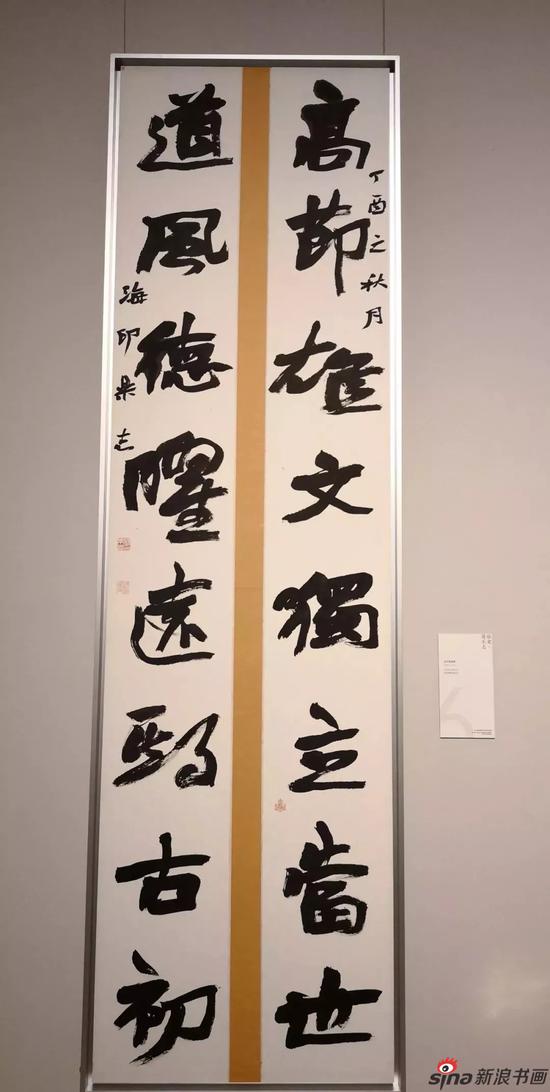 高節雄文獨立當世
丁酉之秋月
道風德曜遠古初
海印果志
sina新浪书画